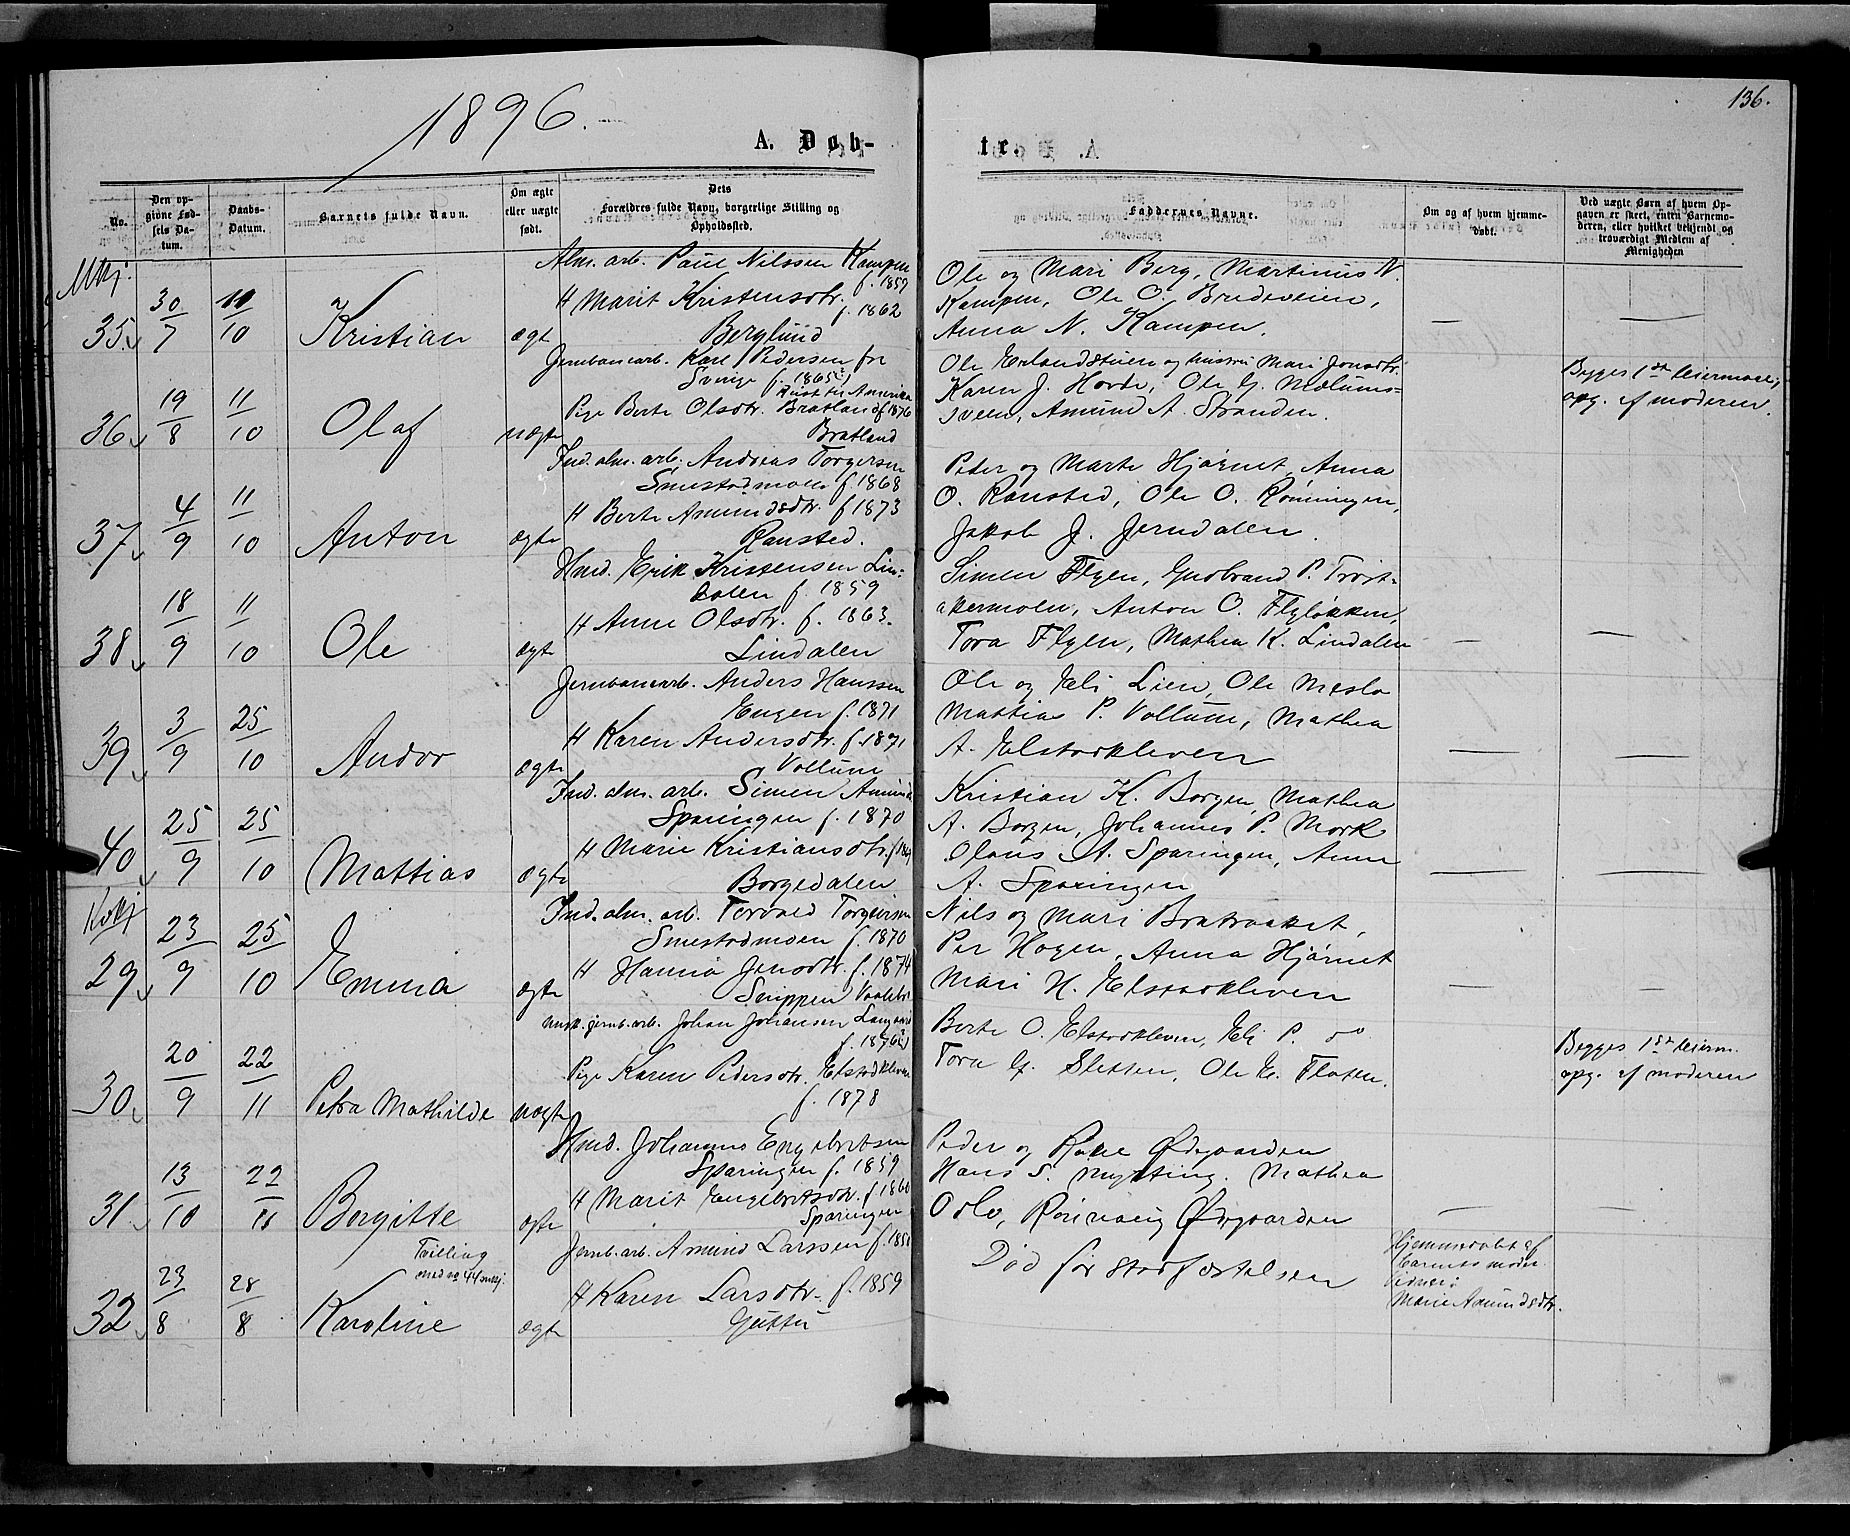 136.
1896.
A. Døb-
tr.
No.
Den op-
givne Fød-
sels Da-
tum.
Daabs-
Datum.
Barnets fulde Navn.
Om ægte
eller uægte
født.
Dets
Forældres fulde Navn, borgerlige Stilling og
Opholdssted.
Faddernes Navne.
Om og af hvem hjemme-
døbt.
Ved uægte Børn af hvem Op-
gaven er skeet, enten Barnemo-
deren, eller hvilket bekjendt og
troværdigt Medlem af
Menigheden
35. 30/7 10/10 Kristian ægt
Alm. arb. Paul Nilssen Kampen
f. 1859
H Marit Kristensdtr.
f. 1862
Berglund
Ole og Mari Berg, Martinus N.
Kampen, Ole O. Brudeveien,
Anna N. Kampen.
—
—
36 19/8 11/10 Olaf uægte
Jernbanearb. Karl Pedersen fra
Sverige f. 1865
Reist til Amerika
Pige Berte Olsdtr. Bratland f. 1876
Bratland
Ole Erlandstuen og hustru Mari Jonsdtr.
Karen J. Hovde, Ole G. Mælums-
sveen, Amund A. Stranden.
Begges 1ste leiermaal,
opg. af moderen.
37 4/9 11/10 Anton ægte
Ind. alm. arb. Andreas Torgersen
Smestadmoen f. 1868
H Berte Amundsdtr. f 1873
Ransted.
Peder og Marte Hjørnet, Anna
O. Ransted, Ole O. Rønningen,
Jakob J. Jerndalen.
38 18/9 11/10 Ole ægt
Hmd. Erik Kristensen Lin-
dalen f. 1859
H Anne Olsdtr. f. 1863.
Lindalen
Simen Flyen, Gudbrand P. Trøst-
akermoen, Anton O. Flyløkken,
Tora Flyen, Mathea K. Lindalen
—
—
39 3/9 25/10 Andor ægte
Jernbanearb. Anders Hanssen
Engen f. 1871
H Karen Andersdtr. f. 1871
Vollum
Ole og Eli Lien, Ole Meslo
Mattias P. Vollum, Mathea
A. Elstadkleven
—
—
40 25/9 25/10 Mattias ægte
Ind. alm. arb. Simen Amunds
Sparingen f. 1870
H Marie Kristiansdtr.
Borgedalen
Kristian K. Borgen, Mathea
A. Borgen, Johannes P. Mork
Olaus A. Sparingen, Anne
A. Sparingen
—
—
29 23/9 25/10 Emma ægte
Ind. alm. arb. Torvald Torgersen
Smestadmoen f. 1870
H Hanna Jensdtr. f. 1874
Snippen
Nils og Mari Bratbakket,
Per Hagen, Anna Hjørnet
Mari H. Elstadkleven
—
—
30 20/9 22/11 Petra Mathilde uægte
Ungk. jernb. arb. Johan Johansen
f. 1876
Pige Karen Pedersdtr. Elstadkleven
f. 1878
Berte O. Elstadkleven, Eli P. do
Tora G. Sletten, Ole E. Flaten.
Begges 1ste leierm.
opg. af moderen
31 13/10 22/11 Borgitte ægte
Hmd. Johannes Engebretsen
Sparingen f. 1859
H Marit Engebretsdtr. f 1860
Sparingen
Peder og Ødegaarden
Hans S. Mytting, Mathea
Oslo, Rønnaug Ødegaarden
—
—
32 23/8 28/8 Karoline ægte
Tvilling
med no 44
Jernb. arb. Amund Larssen
H Karen Larsdtr. f. 1859
Død før stadfæstelsen
Hjemmedøbt af
Marie Amundsdtr.